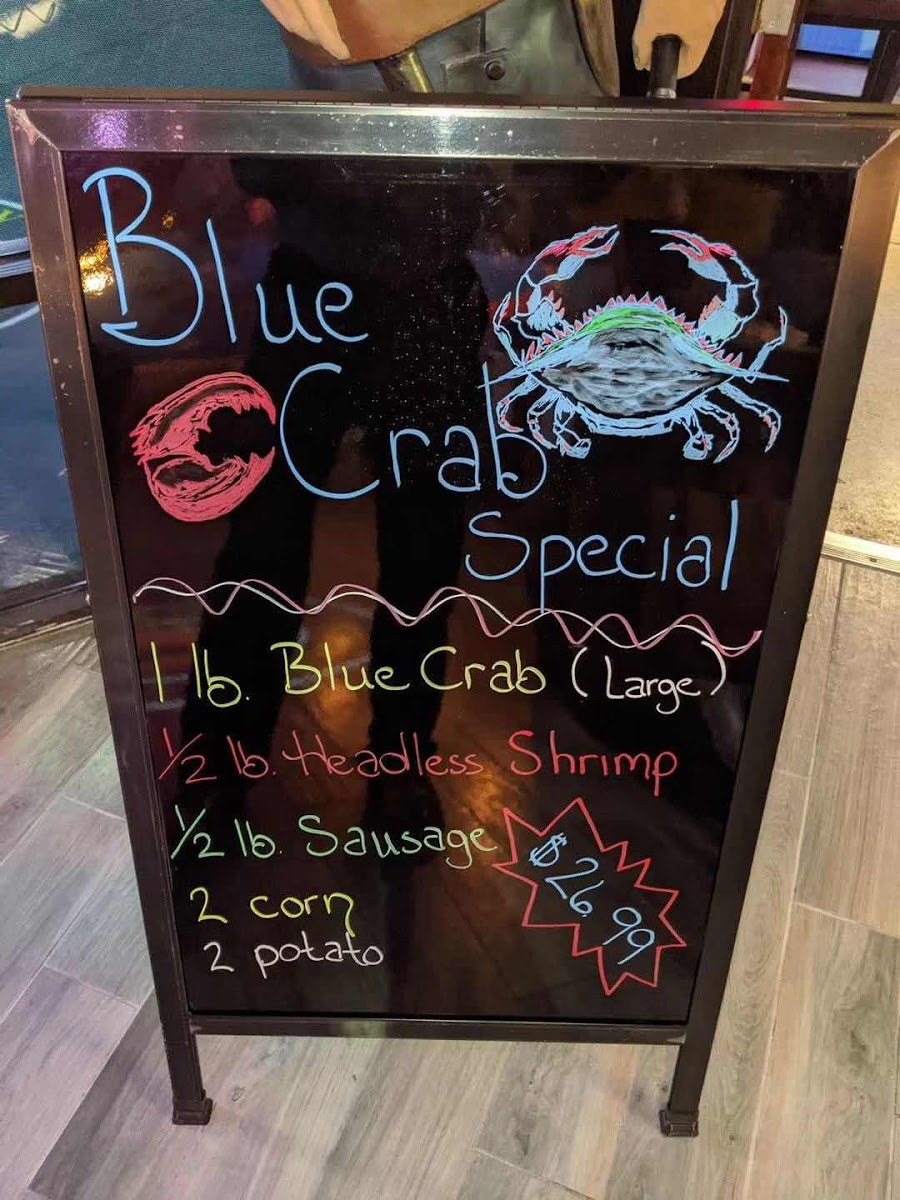 Blue
Crab
Special
1 lb. Blue Crab (Large)
1/2 lb. Headless Shrimp
1/2 lb. Sausage
2 corn
2 potato
$26.99